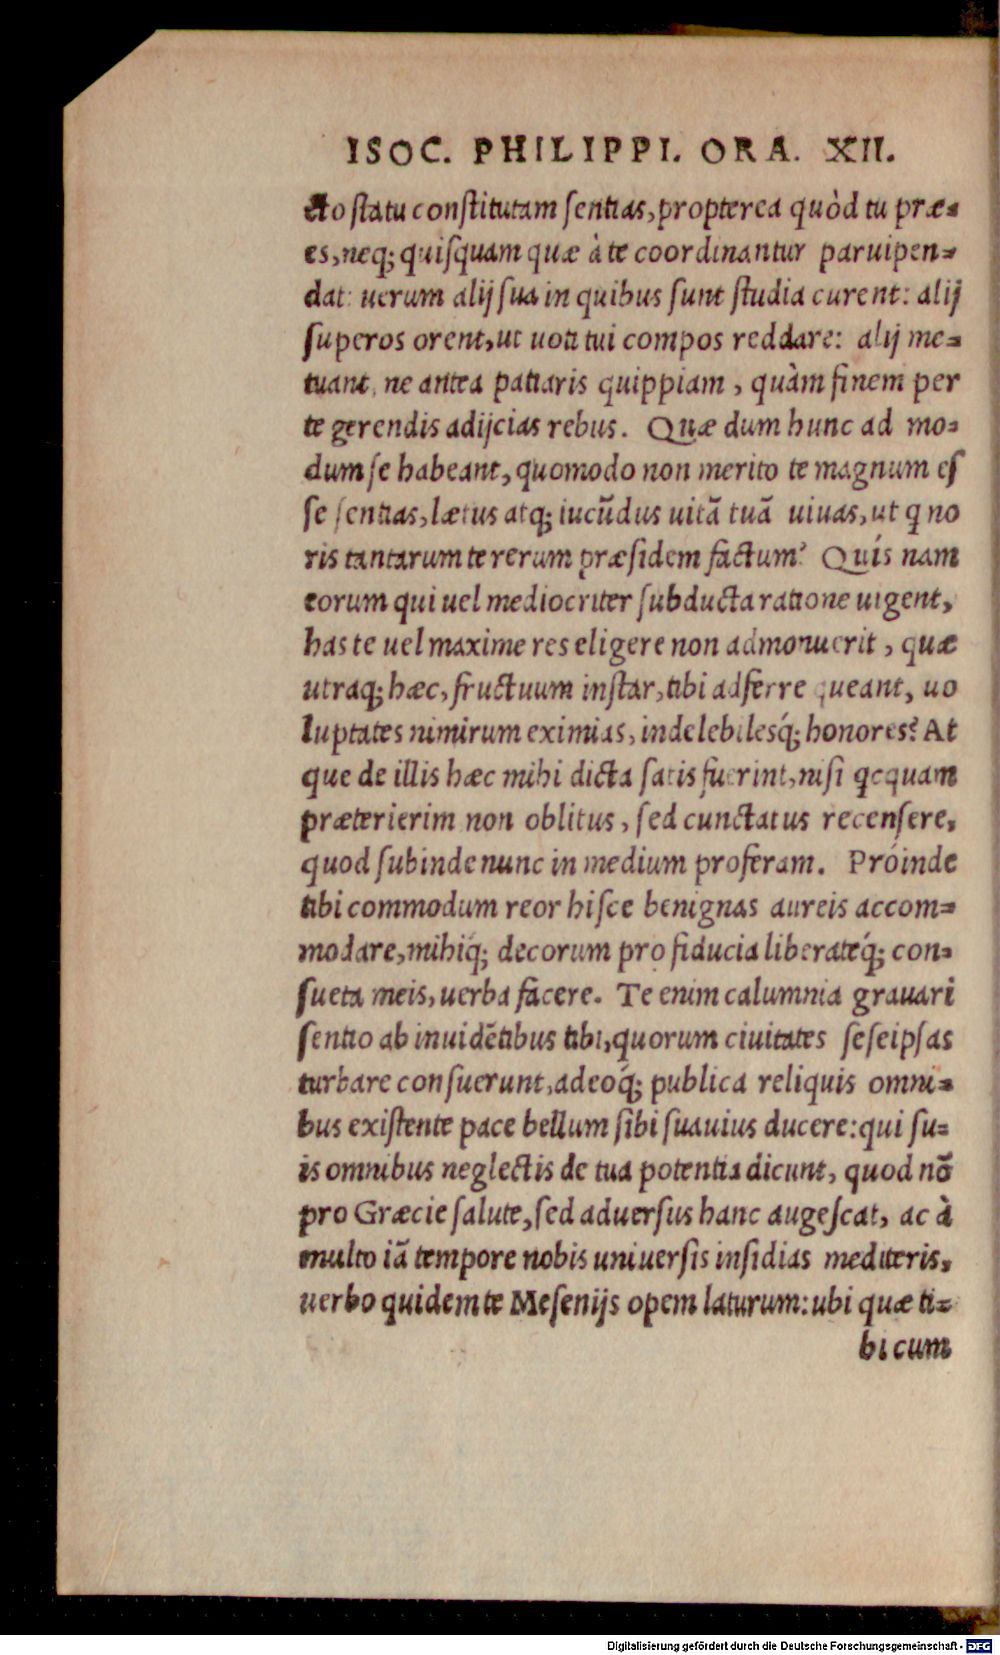 ISOC. PHILIPPI. ORA. XII.
cto ſtatu conſtitutam ſentias, propterea quòd tu præ-
es, neq; quiſquam quæ à te coordinantur paruipen-
dat: uerum alij ſua in quibus ſunt ſtudia curent: alij
ſuperos orent, ut uoti tui compos reddare: alij me-
tuant, ne antea patiaris quippiam, quàm finem per
te gerendis adijcias rebus. Quæ dum hunc ad mo-
dum ſe habeant, quomodo non merito te magnum eſ
ſe ſentias, lætus atq; iucũdus uitã tuã uiuas, ut q no
ris tantarum te rerum præſidem factum? Quís nam
eorum qui uel mediocriter ſubducta ratione uigent,
has te uel maxime res eligere non admonuerit, quæ
utraq; hæc, fructuum inſtar, tibi adferre queant, uo
luptates nimirum eximias, indelebilesq́; honores? At
que de illis hæc mihi dicta ſatis fuerint, niſi qcquam
præterierim non oblitus, ſed cunctatus recenſere,
quod ſubinde nunc in medium proferam. Próinde
tibi commodum reor hiſce benignas aureis accom-
modare, mihiq́; decorum pro fiducia liberateq́; con-
ſueta meis, uerba facere. Te enim calumnia grauari
ſentio ab inuidẽtibus tibi, quorum ciuitates ſeſeipſas
turbare conſuerunt, adeoq́; publica reliquis omni-
bus exiſtente pace bellum ſibi ſuauius ducere: qui ſu-
is omnibus neglectis de tua potentia dicunt, quod nõ
pro Græcie ſalute, ſed aduerſus hanc augeſcat, ac à
multo iã tempore nobis uniuerſis inſidias mediteris,
uerbo quidem te Meſenijs opem laturum: ubi quæ ti-
bi cum
Digitalisierung gefördert durch die Deutsche Forschungsgemeinschaft - DFG